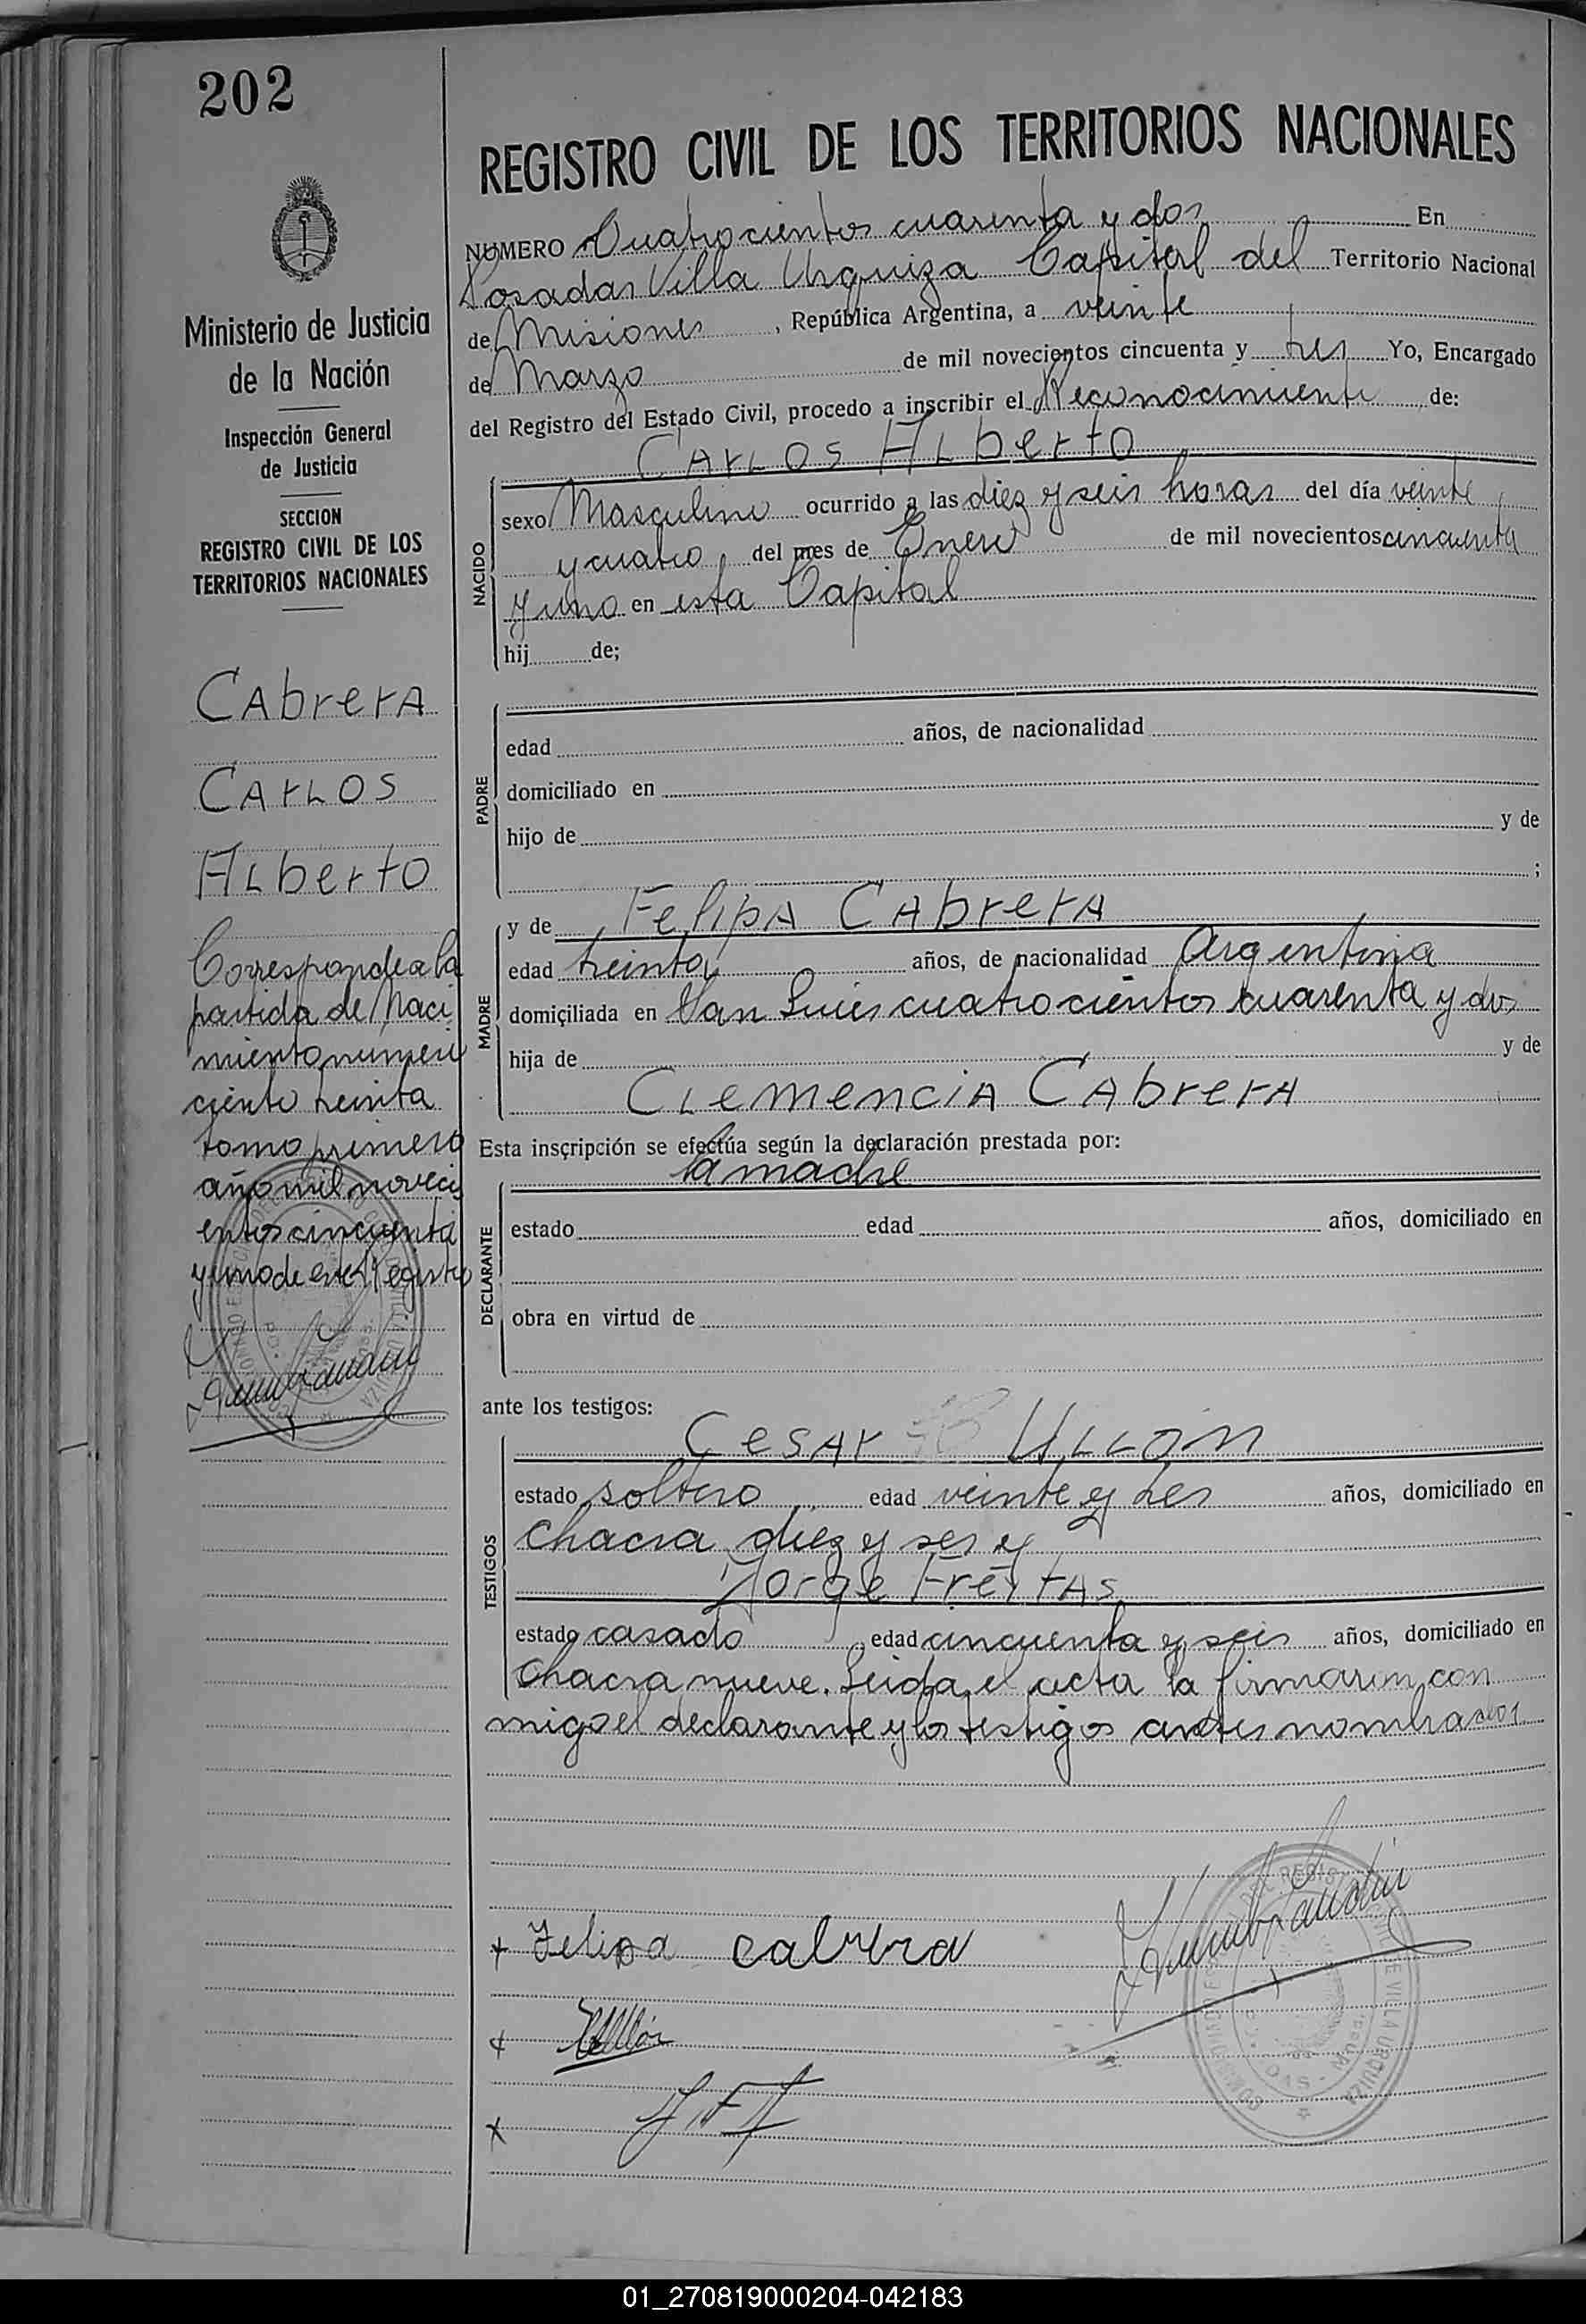 202
Ministerio de Justicia
de la Nación
Inspección General
de Justicia
SECCION
REGISTRO CIVIL DE LOS
TERRITORIOS NACIONALES
Cabrera
Carlos
Alberto
Corresponde a la
partida de Naci
miento numero
ciento treinta
tomo primero
año mil noveci
entos cincuenta
y uno de este Registro
REGISTRO CIVIL DE LOS TERRITORIOS NACIONALES
NUMERO Cuatrocientos cuarenta y dos En
Posadas Villa Urquiza Capital del Territorio Nacional
de Misiones, República Argentina, a veinte
de Marzo de mil novecientos cincuenta y tres Yo, Encargado
del Registro del Estado Civil, procedo a inscribir el Reconocimiento de:
Carlos Alberto
NACIDO
sexo Masculino ocurrido a las diez y seis horas del día veinte
y cuatro del mes de Enero de mil novecientos cincuenta
y uno en esta Capital
hij de;
PADRE
edad años, de nacionalidad
domiciliado en
hijo de y de
;
MADRE
y de Felipa Cabrera
edad treinta años, de nacionalidad Argentina
domiciliada en San Luis cuatrocientos cuarenta y dos
hija de y de
Clemencia Cabrera
Esta inscripción se efectúa según la declaración prestada por:
la madre
DECLARANTE
estado edad años, domiciliado en
obra en virtud de
ante los testigos:
TESTIGOS
Cesar Ullon
estado soltero edad veinte y tres años, domiciliado en
chacra diez y ses y
Jorge Freytas
estado casado edad cincuenta y seis años, domiciliado en
chacra nueve. Leida el acta la firmaron con
migo el declarante y los testigos antes nombrados
+ Felipa cabrera
01_270819000204-042183